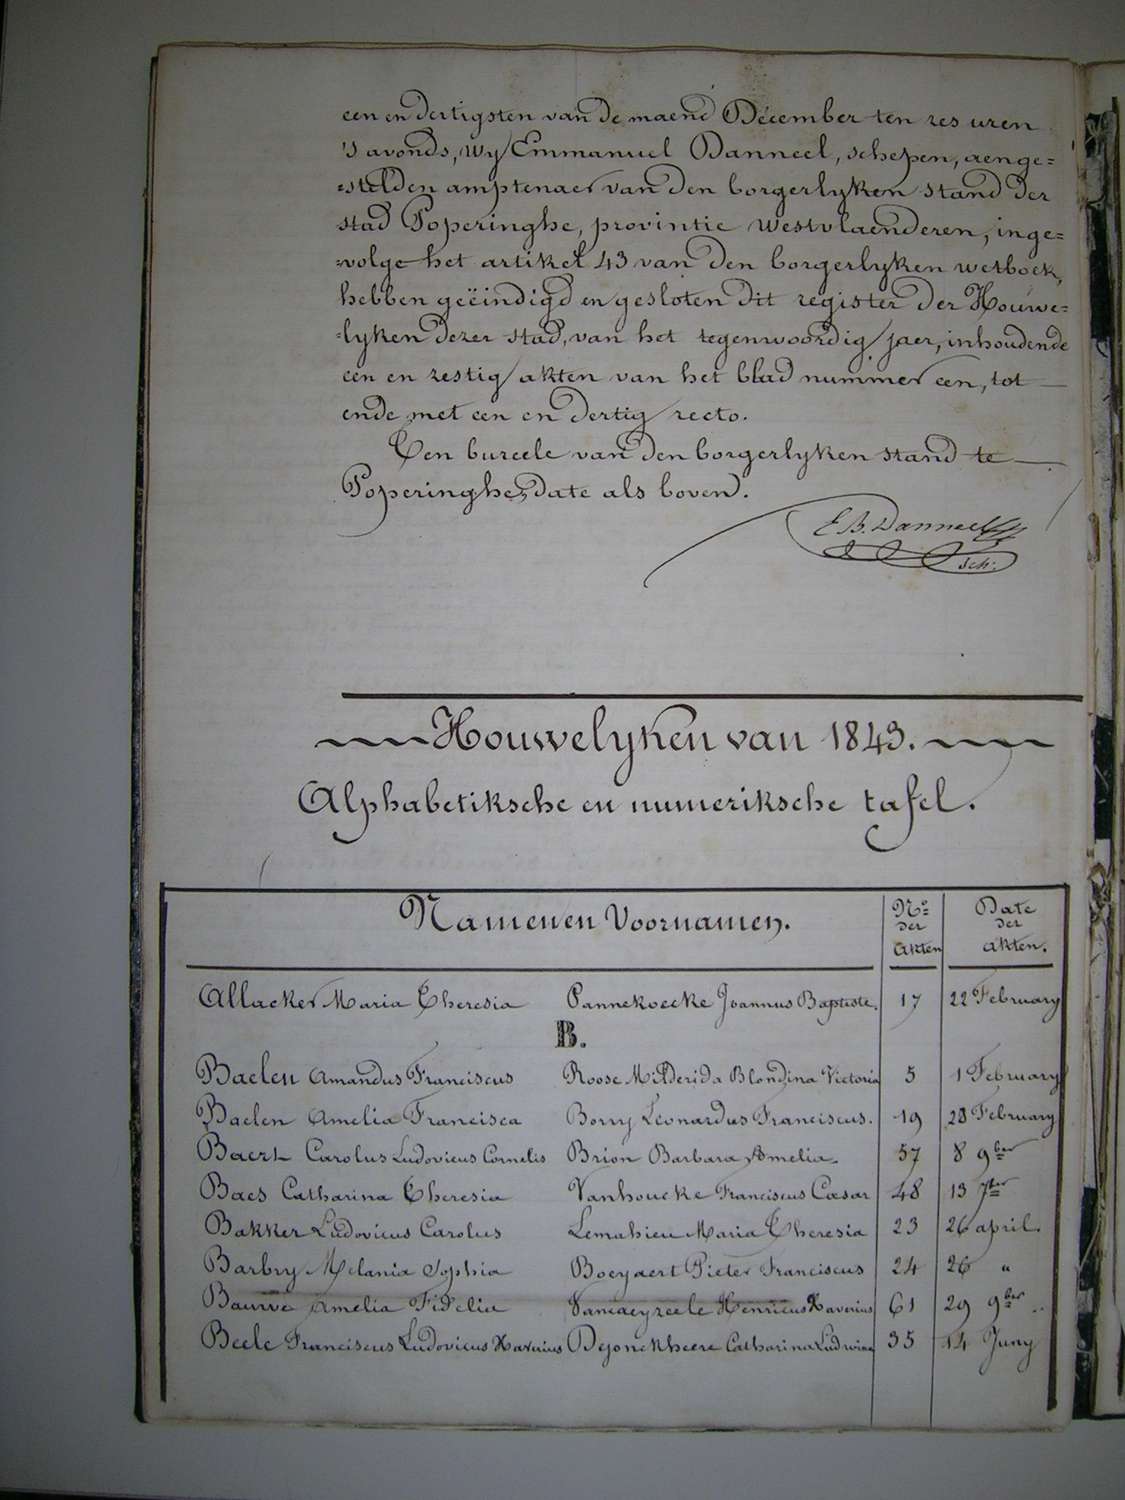 een en dertigsten van de maend December ten zes uren
's avonds, wy Emmanuel Danneel, schepen, aenge=
=stelden amptenaer van den borgerlyken stand der
stad Poperinghe, provintie Westvlaenderen, inge=
=volge het artikel 43 van den borgerlyken wetboek,
hebben geëindigd en gesloten dit register der Houwe=
=lyken dezer stad, van het tegenwoordig jaer, inhoudende
een en zestig akten van het blad nummer een, tot
ende met een en dertig recto.
Ten bureele van den borgerlyken stand te
Poperinghe, date als boven.
E B. Danneel
Sch:
Houwelyken van 1843.
Alphabetiksche en numeriksche tafel.
Namen en Voornamen. Nos der akten Date der akten.
Allacker Maria Theresia Pannekoecke Joannus Baptiste. 17 22 February
B.
Baelen Amandus Franciscus Roose Milderida Blondina Victoria 5 1 February
Baelen Amelia Francisca Borry Leonardus Franciscus. 19 28 February
Baert Carolus Ludovicus Cornelis Brion Barbara Amelia. 57 8 9ber
Baes Catharina Theresia Vanhoucke Franciscus Cæsar 48 13 7ber
Bakker Ludovicus Carolus Lemahieu Maria Theresia 23 26 april.
Barbry Melania Sophia Boeyaert Pieter Franciscus 24 26 "
Amelia Fidelia Henricus Xaverius 61 29 9ber
Beele Franciscus Ludovicus Xaverius Dejonckheere Catharina 35 14 Juny